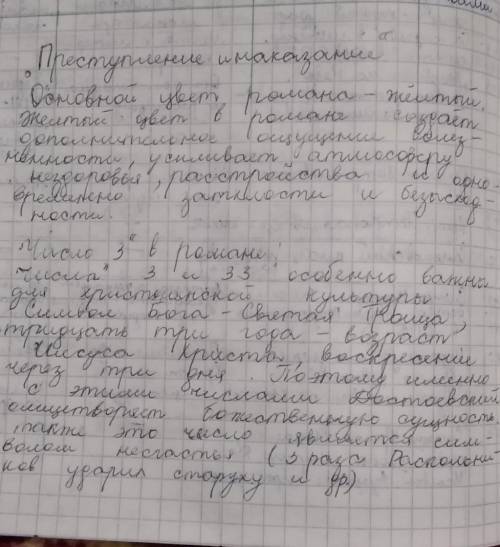 „Преступление и наказание"
Основной цвет романа - жёлтый.
Желтый цвет в романе создаёт
дополнительное ощущение болез-
ненности, усиливает атмосферу
нездоровья, расстройства и одно
временно затхлости и безысход-
ности.
„Число 3" в романе
Числа 3 и 33 особенно важны
для христианской культуры
Символ Бога - Святая Троица,
тридцать три года - возраст
Иисуса Христа, воскресение
через три дня. Поэтому именно
с этими числами Достоевский
олицетворяет божественную сущность.
также это число является сим-
волом несчастья (3 раза Раскольни-
ков ударил старуху и др.)